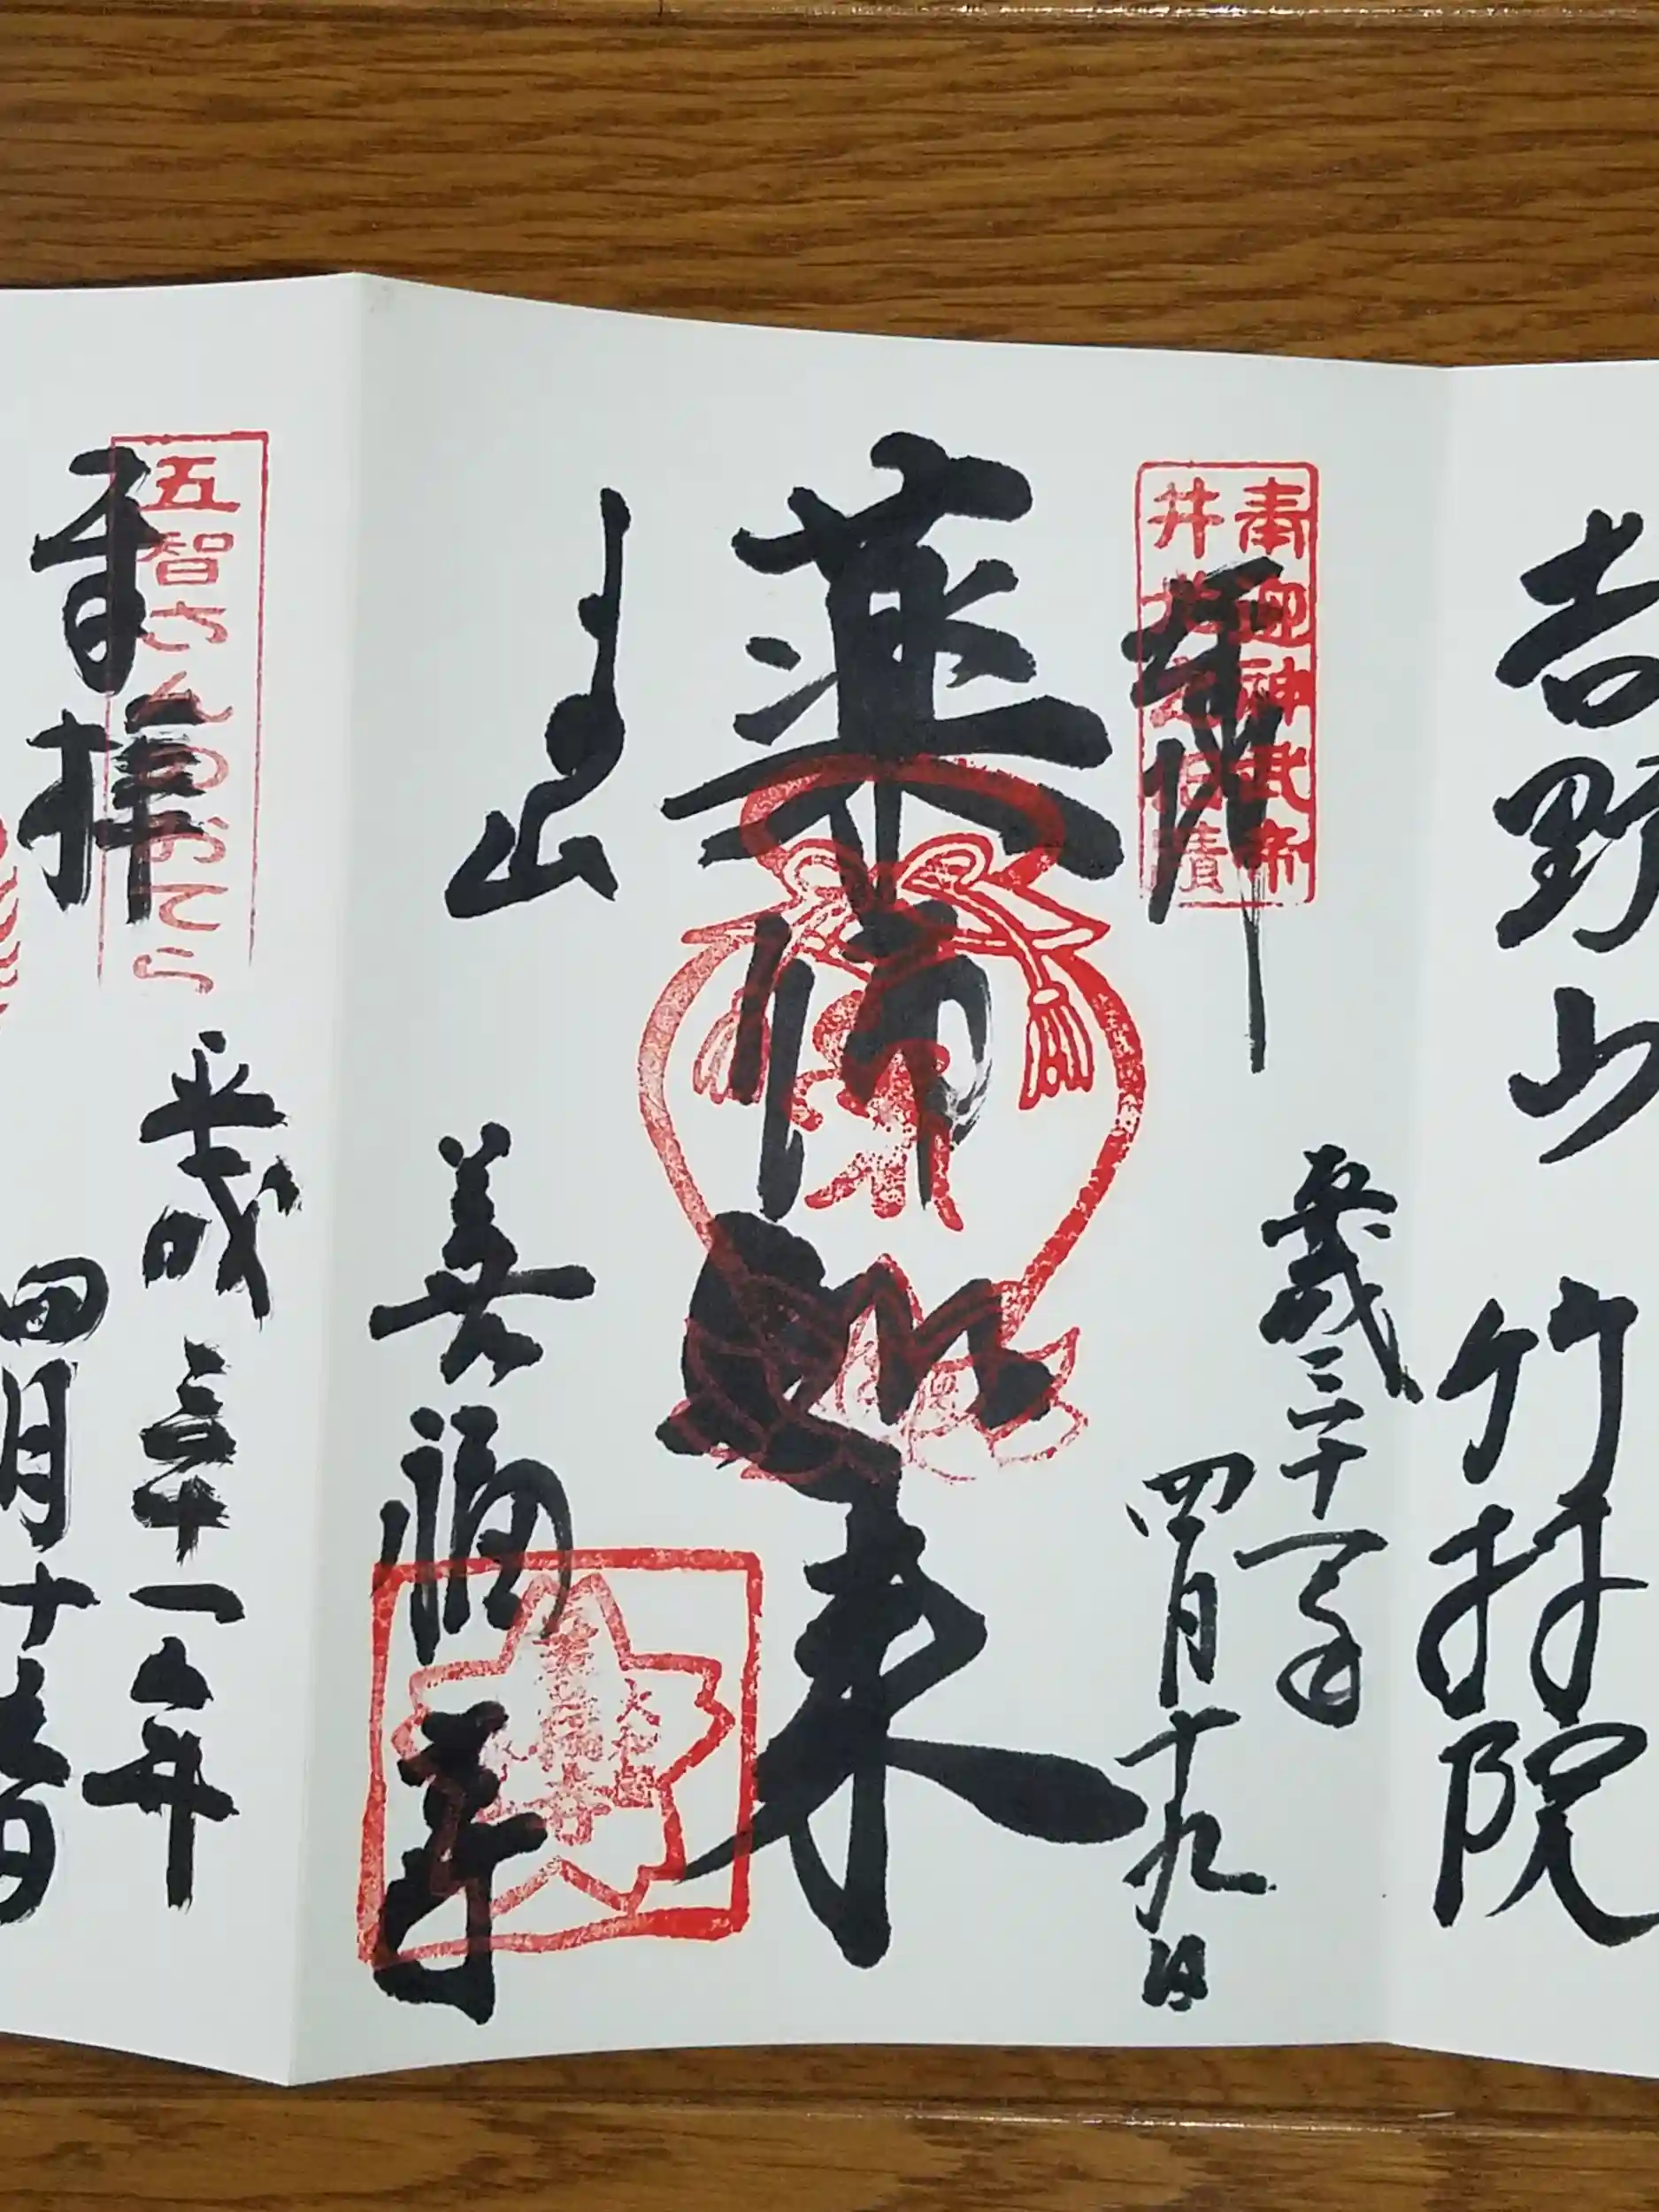 吉野山　竹林院
奉迎神武帝
井光
旧蹟
奉拝
平成三十一年
四月十九日
薬師如来
善福寺
大和
善福寺
五智さんのおてら
奉拝
平成三十一年
四月十